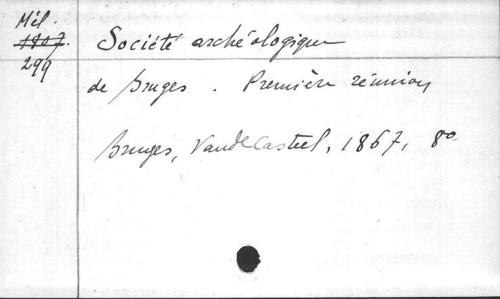 Mél.
1807.
299
Société archéologique
de Bruges. Première réunion
Bruges, Vandecasteel, 1867, 8o.